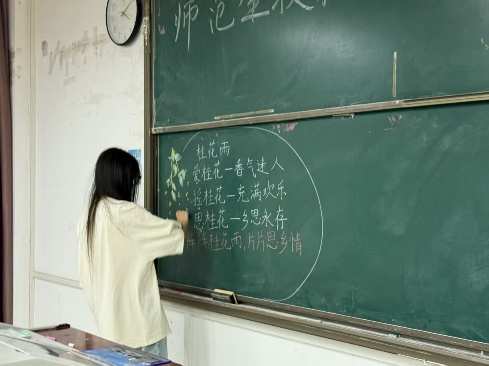 师范生技
桂花雨
爱桂花一香气迷人
摇桂花一充满欢乐
思桂花一乡思永存
阵阵桂花雨,片片思乡情